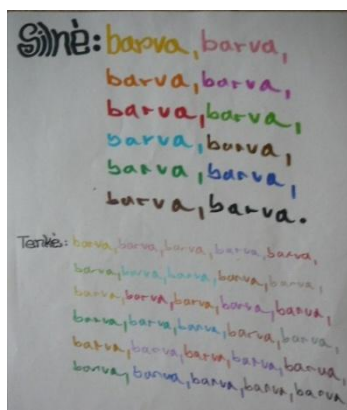 Silné: barva, barva,
barva, barva,
barva, barva,
barva, barva,
barva, barva,
barva, barva.
Tenké: barva, barva, barva, barva, barva,
barva, barva, barva, barva, barva,
barva, barva, barva, barva, barva,
barva, barva, barva, barva, barva,
barva, barva, barva, barva, barva,
barva, barva, barva, barva, barva